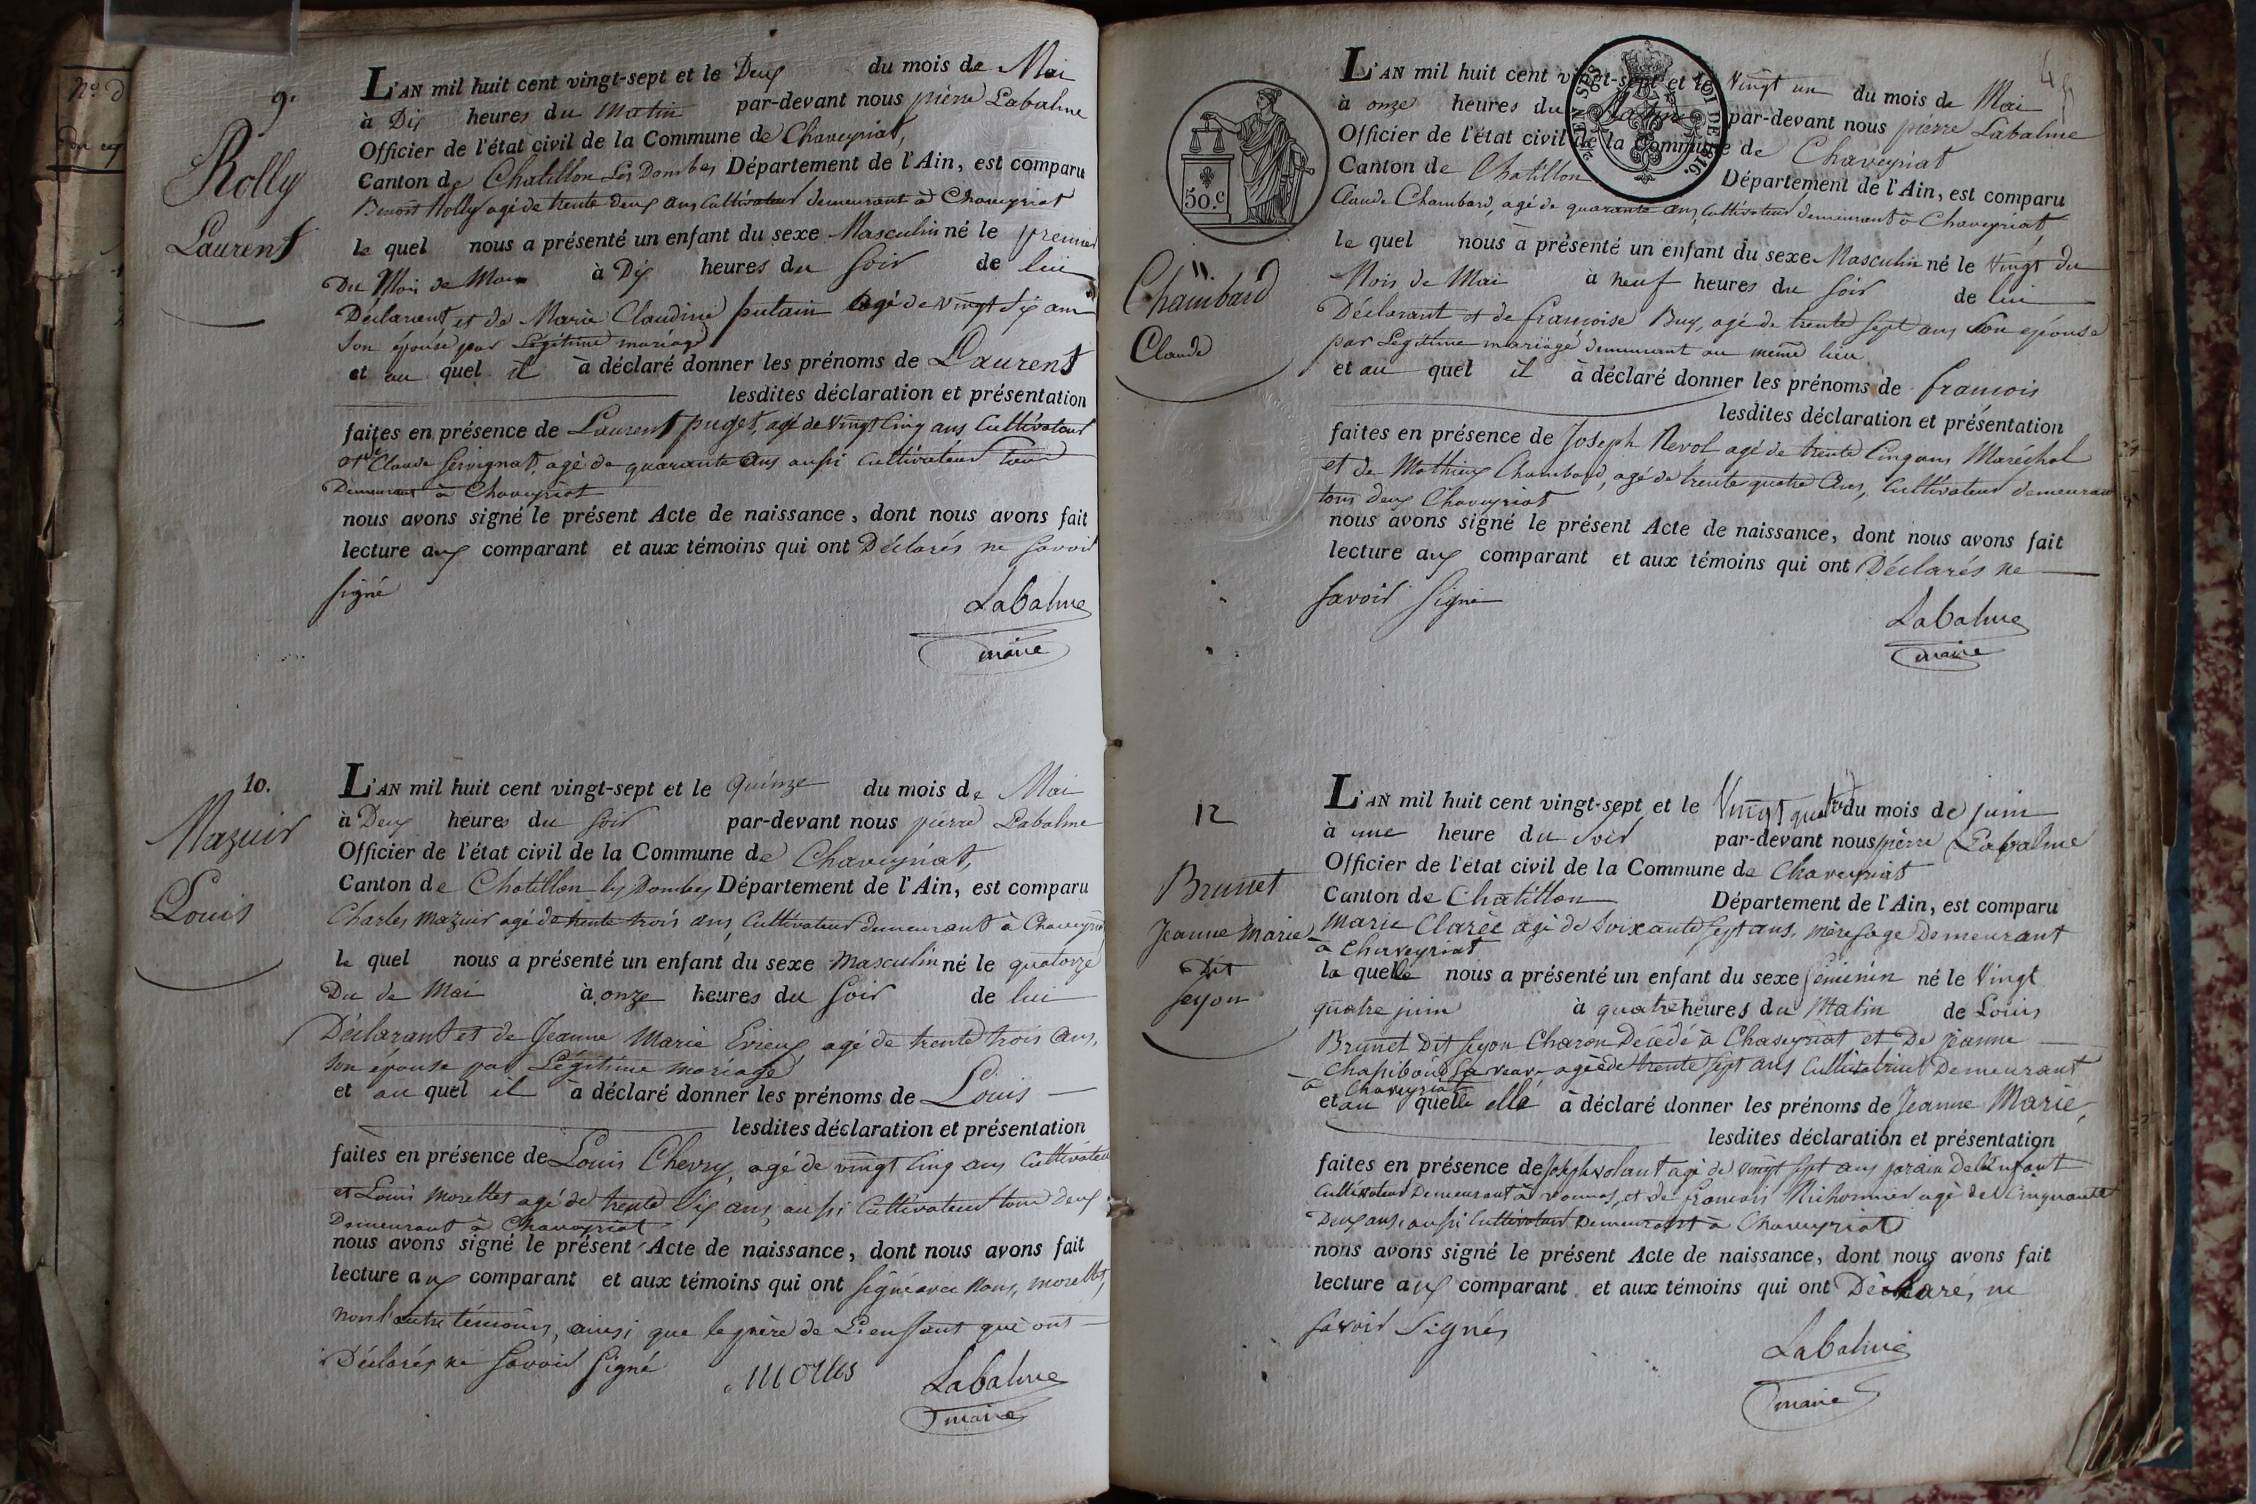 9.
Rolly
Laurent
L'AN mil huit cent vingt-sept et le Deux du mois de Mai
à Dix heures du Matin par-devant nous pierre Labalme
Officier de l'état civil de la Commune de Chaveyriat,
Canton de Chatillon Les Dombes Département de l'Ain, est comparu
Benoît Rolly agé de trente deux ans Cultivateur demeurant à Chaveyriat
le quel nous a présenté un enfant du sexe Masculin né le premier
Du Mois de Mai à Dix heures du soir de lui
Déclarent, et de Marie Claudine putain agé de vingt six ans
Son épouse par Légitime mariage
et au quel il à déclaré donner les prénoms de Laurent
lesdites déclaration et présentation
faites en présence de Laurent puget, agé de vingt Cinq ans Cultivateur
et Claude Servignat, agé de quarante ans aussi Cultivateur tous
Demeurant à Chaveyriat
nous avons signé le présent Acte de naissance, dont nous avons fait
lecture aux comparant et aux témoins qui ont Déclarés ne savoir
signé
Labalme
maire
10.
Mazuir
Louis
L'AN mil huit cent vingt-sept et le quinze du mois de Mai
à Deux heures du soir par-devant nous pierre Labalme
Officier de l'état civil de la Commune de Chaveyriat,
Canton de Chatillon les Dombes Département de l'Ain, est comparu
Charles Mazuir agé de trente trois ans, Cultivateur demeurant à Chaveyriat
le quel nous a présenté un enfant du sexe Masculin né le quatorze
Du de Mai à onze heures du soir de lui
Déclarant et de Jeanne Marie Evieux agé de trente trois ans,
son épouse par Légitime mariage
et au quel il à déclaré donner les prénoms de Louis
lesdites déclaration et présentation
faites en présence de Louis Chevry, agé de vingt Cinq ans Cultivateur
et Louis morettes agé de trente Six ans, aussi Cultivateur tous deux
Demeurant à Chaveyriat
nous avons signé le présent Acte de naissance, dont nous avons fait
lecture aux comparant et aux témoins qui ont signé avec Nous, morettes,
non l'autre témoins, ainsi que le père de L'enfant qui ont
Déclarés ne savoir signé
Labalme
maire
50.c
TIMBRE
LOI DE 1816.
11
Chambard
Claude
L'AN mil huit cent vingt-sept et le Vingt un du mois de Mai
à onze heures du Matin par-devant nous pierre Labalme
Officier de l'état civil de la Commune de Chaveyriat
Canton de Chatillon Département de l'Ain, est comparu
Claude Chambard, agé de quarante ans, Cultivateur demeurant à Chaveyriat,
le quel nous à présenté un enfant du sexe Masculin né le Vingt du
Mois de Mai à neuf heures du soir de lui
Déclarant et de françoise Buy, agé de trente sept ans son épouse
par Légitime mariage demeurant au même lieu
et au quel il à déclaré donner les prénoms de francois
lesdites déclaration et présentation
faites en présence de Joseph Revol agé de trente Cinq ans Maréchal
et de Mathieu Chambard, agé de trente quatre ans, Cultivateur demeurant
tous deux Chaveyriat
nous avons signé le présent Acte de naissance, dont nous avons fait
lecture aux comparant et aux témoins qui ont Déclarés ne
savoir Signé
Labalme
maire
12
Brunet
Jeanne Marie
Dit
feyon
L'AN mil huit cent vingt-sept et le Vingt quatre du mois de juin
à une heure du Soir par-devant nous pierre Labalme
Officier de l'état civil de la Commune de Chaveyriat
Canton de Chatillon Département de l'Ain, est comparu
Marie Clarée agé de Soixante sept ans, mère sage Demeurant
à Chaveyriat
la quelle nous a présenté un enfant du sexe féminin né le Vingt
quatre juin à quatre heures du Matin de Louis
Brunet Dit feyon Charon Décédé à Chaveyriat et De jeanne
sa veuve agée de trente sept ans Cultivatrice Demeurant
à Chaveyriat
et au quelle elle à déclaré donner les prénoms de Jeanne Marie,
lesdites déclaration et présentation
faites en présence de Joseph volant agé de vingt sept ans parain De L'enfant
Cultivateur Demeurant à vonnas, et de francois Nichonnier agé de Cinquante
Deux ans, aussi Cultivateur Demeurant à Chaveyriat
nous avons signé le présent Acte de naissance, dont nous avons fait
lecture aux comparant et aux témoins qui ont Déclaré, ne
savoir Signés
Labalme
maire